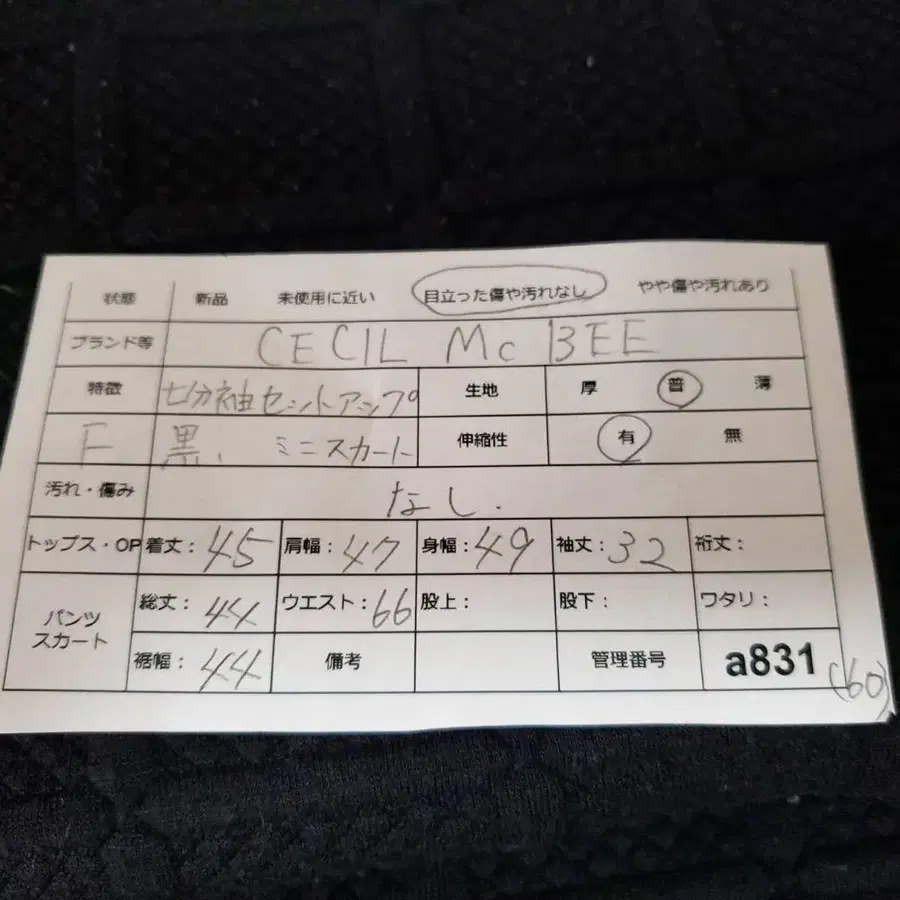 状態 新品 未使用に近い 目立った傷や汚れなし やや傷や汚れあり
ブランド等 CECIL Mc BEE
特徴 七分袖セットアップ 生地 厚 普 薄
F 黒、 ミニスカート 伸縮性 有 無
汚れ・傷み なし.
トップス・OP 着丈: 45 肩幅: 47 身幅: 49 袖丈: 32 裄丈:
パンツ 総丈: 44 ウエスト: 66 股上: 股下: ワタリ:
スカート
裾幅: 44 備考 管理番号 a831
(60)